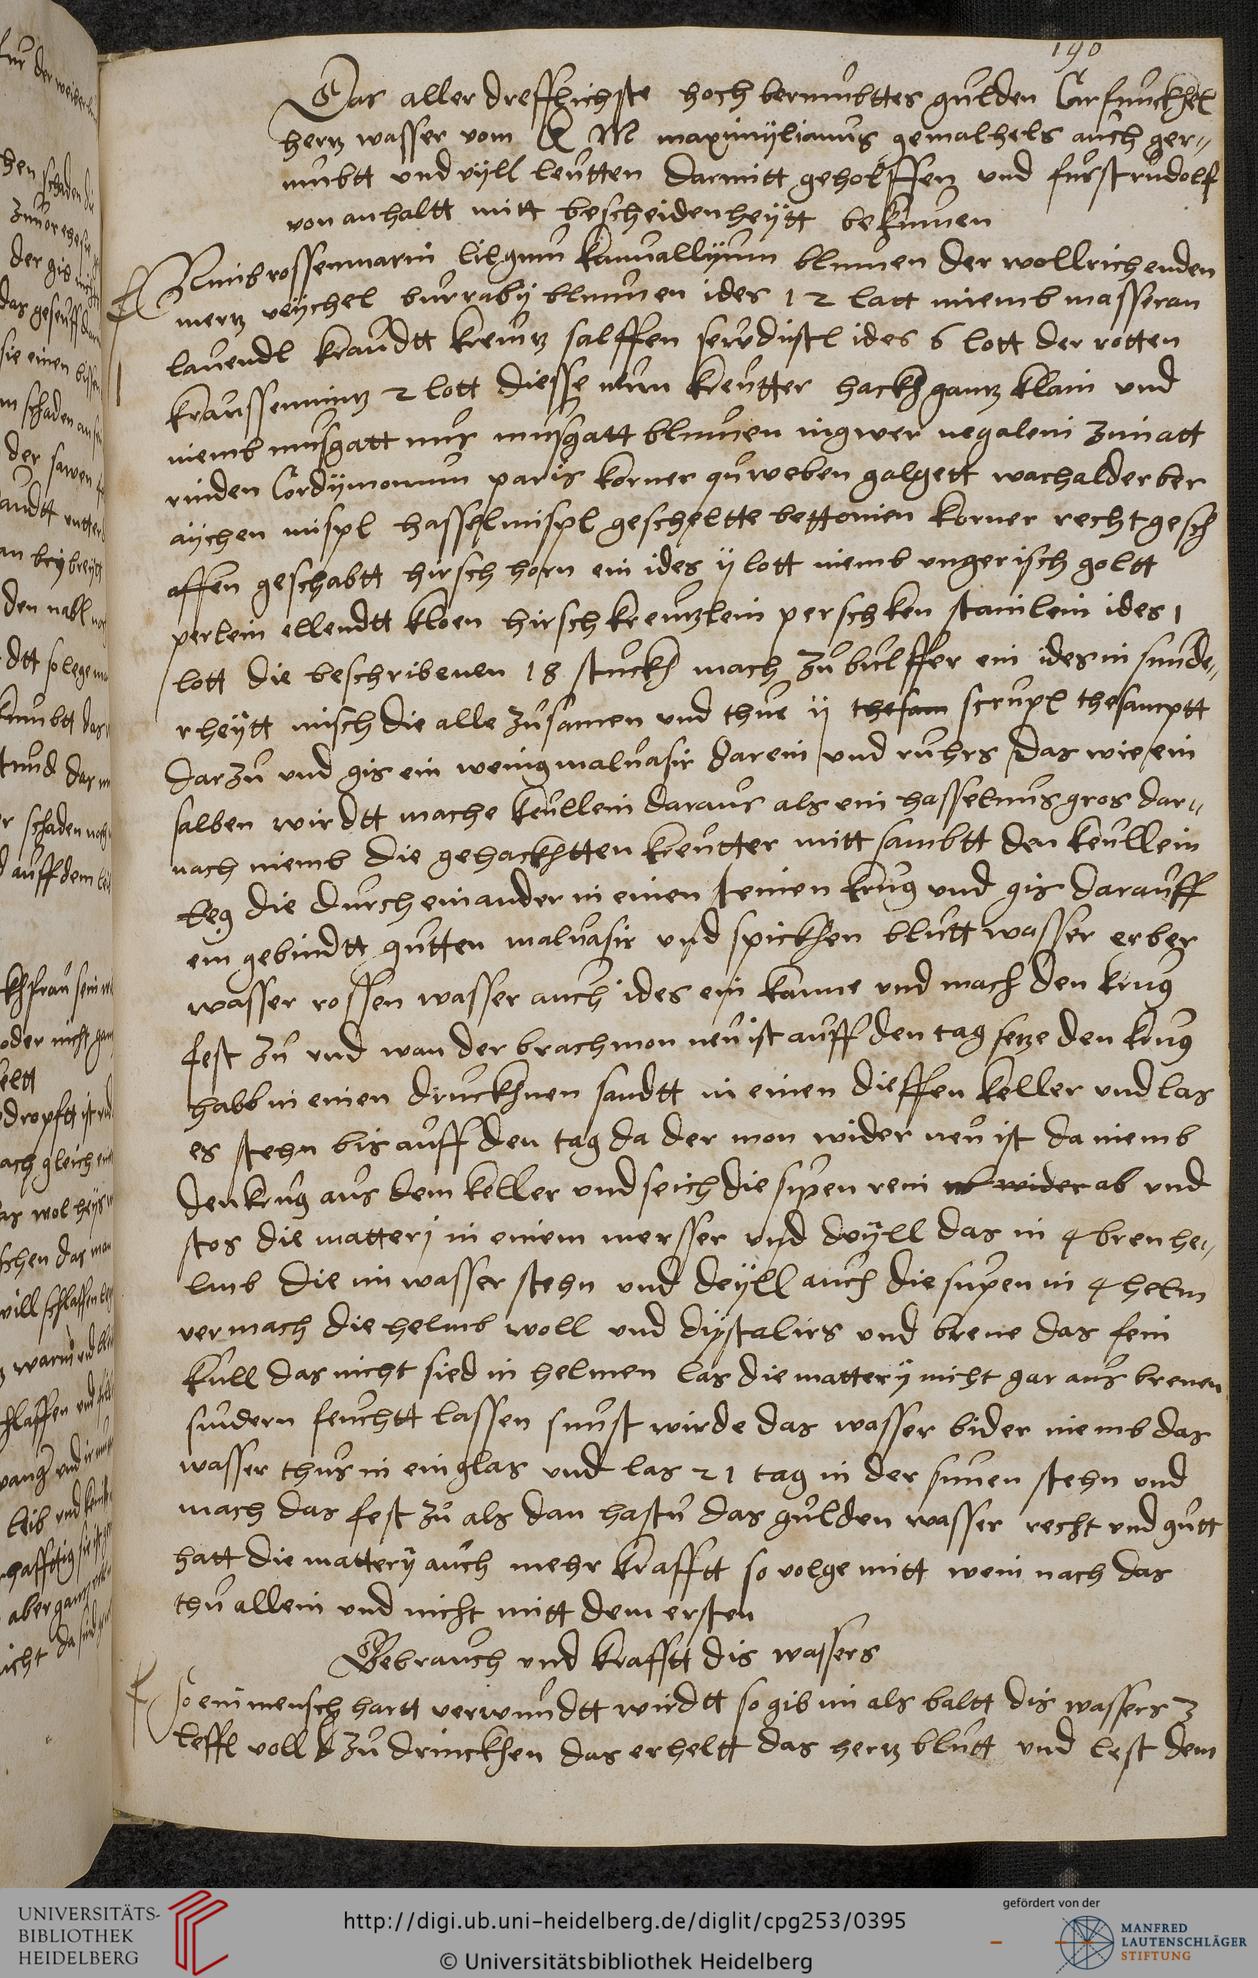 190
Das aller drefflichste hoch bermubttes gulden Carfunckhel
hertz wasser vom K M maximylianus gemalhels auch ger-
mubtt und vyll leutten darmitt geholffen und furst rudolf
von anhaltt mitt bescheidenheytt bekumen
Nimb rossenmarin lilgum kanvallyum blumen der wollrichenden
mertz veychel burraby blumen ides 12 lott niemb masseran
lavendl kraudtt kreutz salffen ides 6 lott der rotten
kraussenmintz 2 lott diesse nun kreutter hackh gantz klain und
niemb musgatt nus musgatt blumen ingwer negalein zimatt
rinden Cordymomum paris korner quweben galgett wachalderber
aychen mispl hasselmispl gescheltte bettonien korner recht gesch
affen geschabtt hirschhorn ein ides ij lott niemb ungerisch goltt
perlein ellendtt kloen hirschkreutzlein perschken stainlein ides 1
lott die beschribenen 18 stuckh mach zu bulffer ein ides in sunde-
rheytt misch die alle zusamen und thue ij thesam scrupl thesamptt
darzu und gis ein wenig malvasir darein und ruhrs das wie ein
salben wirdtt mache keullein daraus als ein hasselnus gros dar-
nach niemb die gehackhtten kreutter mitt sambtt den keullein
leg die durch einander in einen steinen krug und gis darauff
ein gebindtt gutten malvasir und spickhen blutt wasser erber
wasser rossen wasser auch ides ein kanne und mach den krug
fest zu und wan der brachmon neu ist auff den tag setze den krug
habb in einen druckhnen sandtt in einen dieffen keller und las
es stehn bis auff den tag da der mon wider neu ist da niemb
den krug aus dem keller und seich die supen rein wider ab und
stos die mattery in einem mersser und deyll das in 4 bren he-
lmb die im wasser stehn und deyll auch die supen in 4 helm
vermach die helmb woll und dystalirs und brene das fein
kull das nicht sied in helmen las die mattery nicht gar aus brenen
sundern feuchtt lassen sunst wirde das wasser bider niemb das
wasser thus in ein glas und las 21 tag in der sunen stehn und
mach das fest zu als dan hastu das gulden wasser recht und gutt
hatt die mattery auch mehr krafftt so volge mitt wein nach das
thu allein und nicht mitt dem ersten
Gebrauch und krafftt dis wassers
so ein mensch hartt verwundtt wirdtt so gib im als baltt dis wassers 3
leffl voll zu drinckhen das erheltt das hertz blutt und lest dem
UNIVERSITÄTS-
BIBLIOTHEK
HEIDELBERG
http://digi.ub.uni-heidelberg.de/diglit/cpg253/0395
© Universitätsbibliothek Heidelberg
gefördert von der
MANFRED
LAUTENSCHLÄGER
STIFTUNG